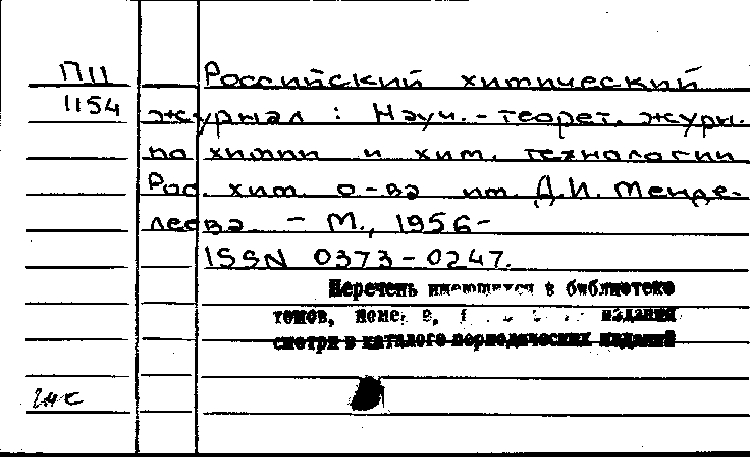 П11
1154
Российский химический
журнал : Науч.-теорет. журн.
по химии и хим. технологии
Рос. хим. о-ва им. Д.И. Менде-
леева. - М., 1956-
ISSN 0373-0247.
Перечень имеющихся в библиотеке
томов, издания
смотри в каталоге периодических изданий